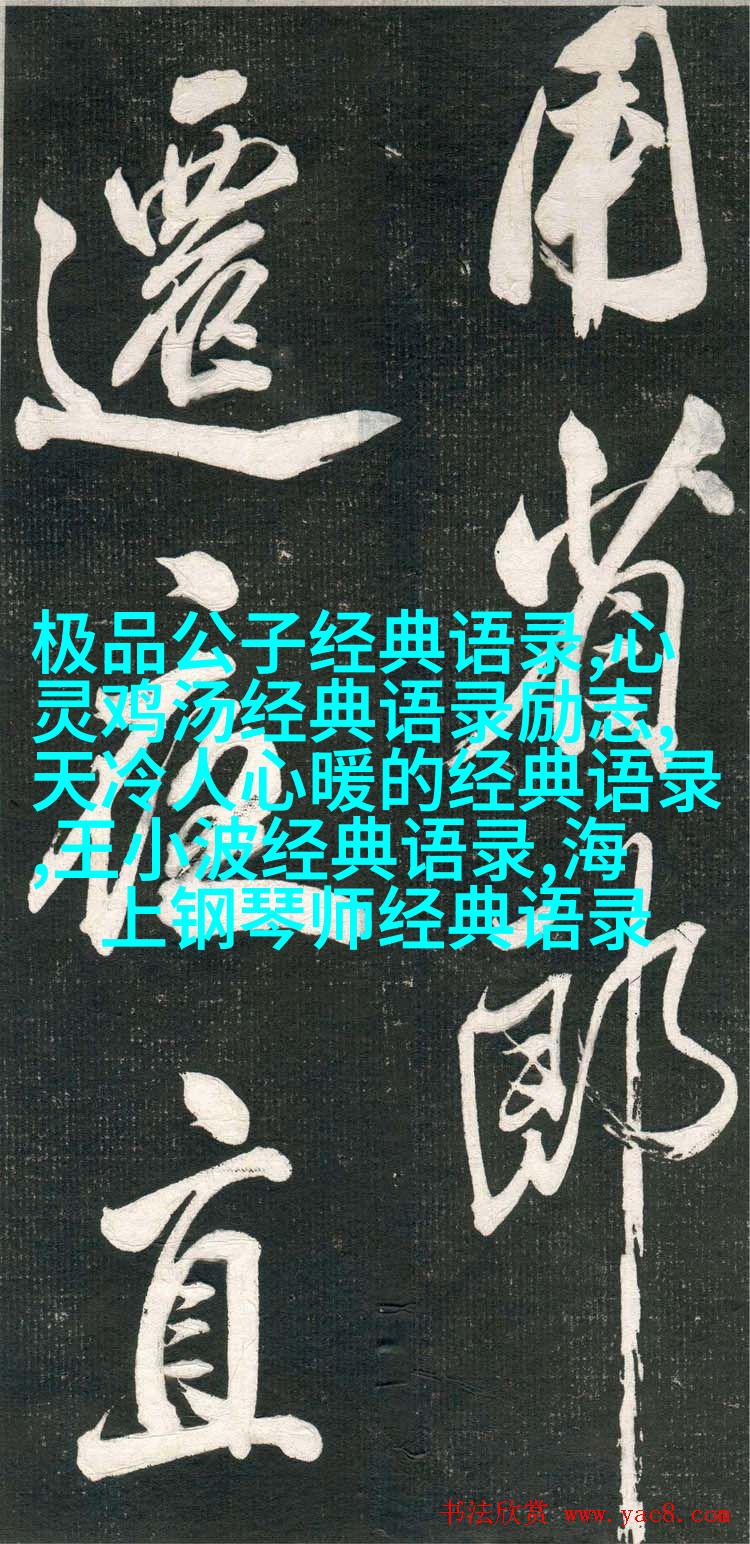 用省郎
遷
直
极品公子经典语录,心
灵鸡汤经典语录励志,
天冷人心暖的经典语录
,王小波经典语录,海
上钢琴师经典语录
书法欣赏 www.yac8.com